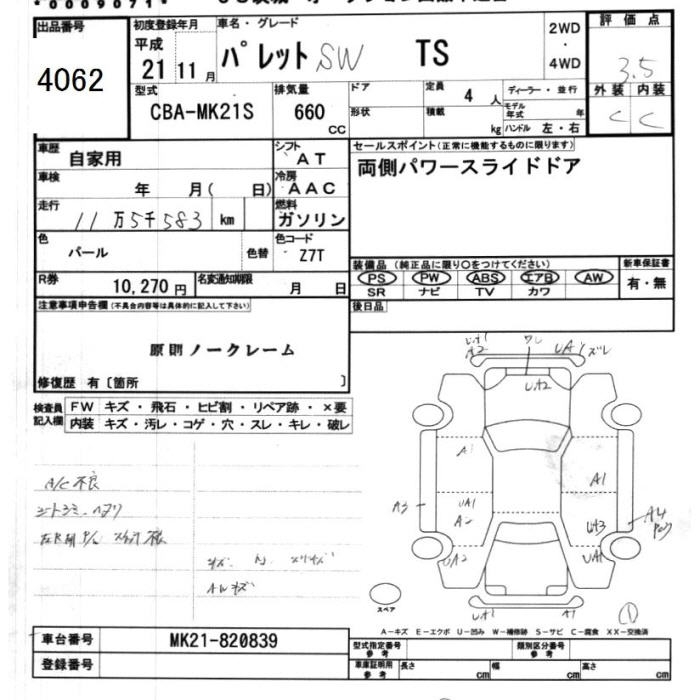 出品番号 初度登録年月 車名・グレード 評価点
4062 平成 21年 11月 パレットSW TS 2WD・4WD 3.5
型式 排気量 ドア 定員 4人 ディーラー・並行 外装 内装
CBA-MK21S 660 CC 形状 積載 kg モデル年式 年 ハンドル 左・右 C C
車歴 自家用 シフト AT セールスポイント(正常に機能するものに限ります)
車検 年 月( 日) 冷房 AAC 両側パワースライドドア
走行 11万5千583 km 燃料 ガソリン
色 パール 色替 色コード Z7T 装備品(純正品に限り○をつけてください) 新車保証書
PS PW ABS エアB AW 有・無
R券 10,270円 名変通知期限 月 日 SR ナビ TV カワ
注意事項申告欄(不具合内容等は具体的に記入して下さい) 後日品
原則ノークレーム
修復歴 有〔箇所 〕
検査員記入欄 FW キズ・飛石・ヒビ割・リペア跡・×要
内装 キズ・汚レ・コゲ・穴・スレ・キレ・破レ
A/C不良
シートシミ ヘタリ
UA1
A2
ワレ
UA1
ズレ
UA2
A1
A1
A3
UA1
A2
UA3
A4
UA2
UA1
スペア
UA1
A1
A-キズ E-エクボ U-凹み W-補修跡 S-サビ C-腐食 XX-交換済
車台番号 MK21-820839 型式指定番号 参考 類別区分番号 参考
登録番号 車庫証明用 参考 長さ cm 幅 cm 高さ cm